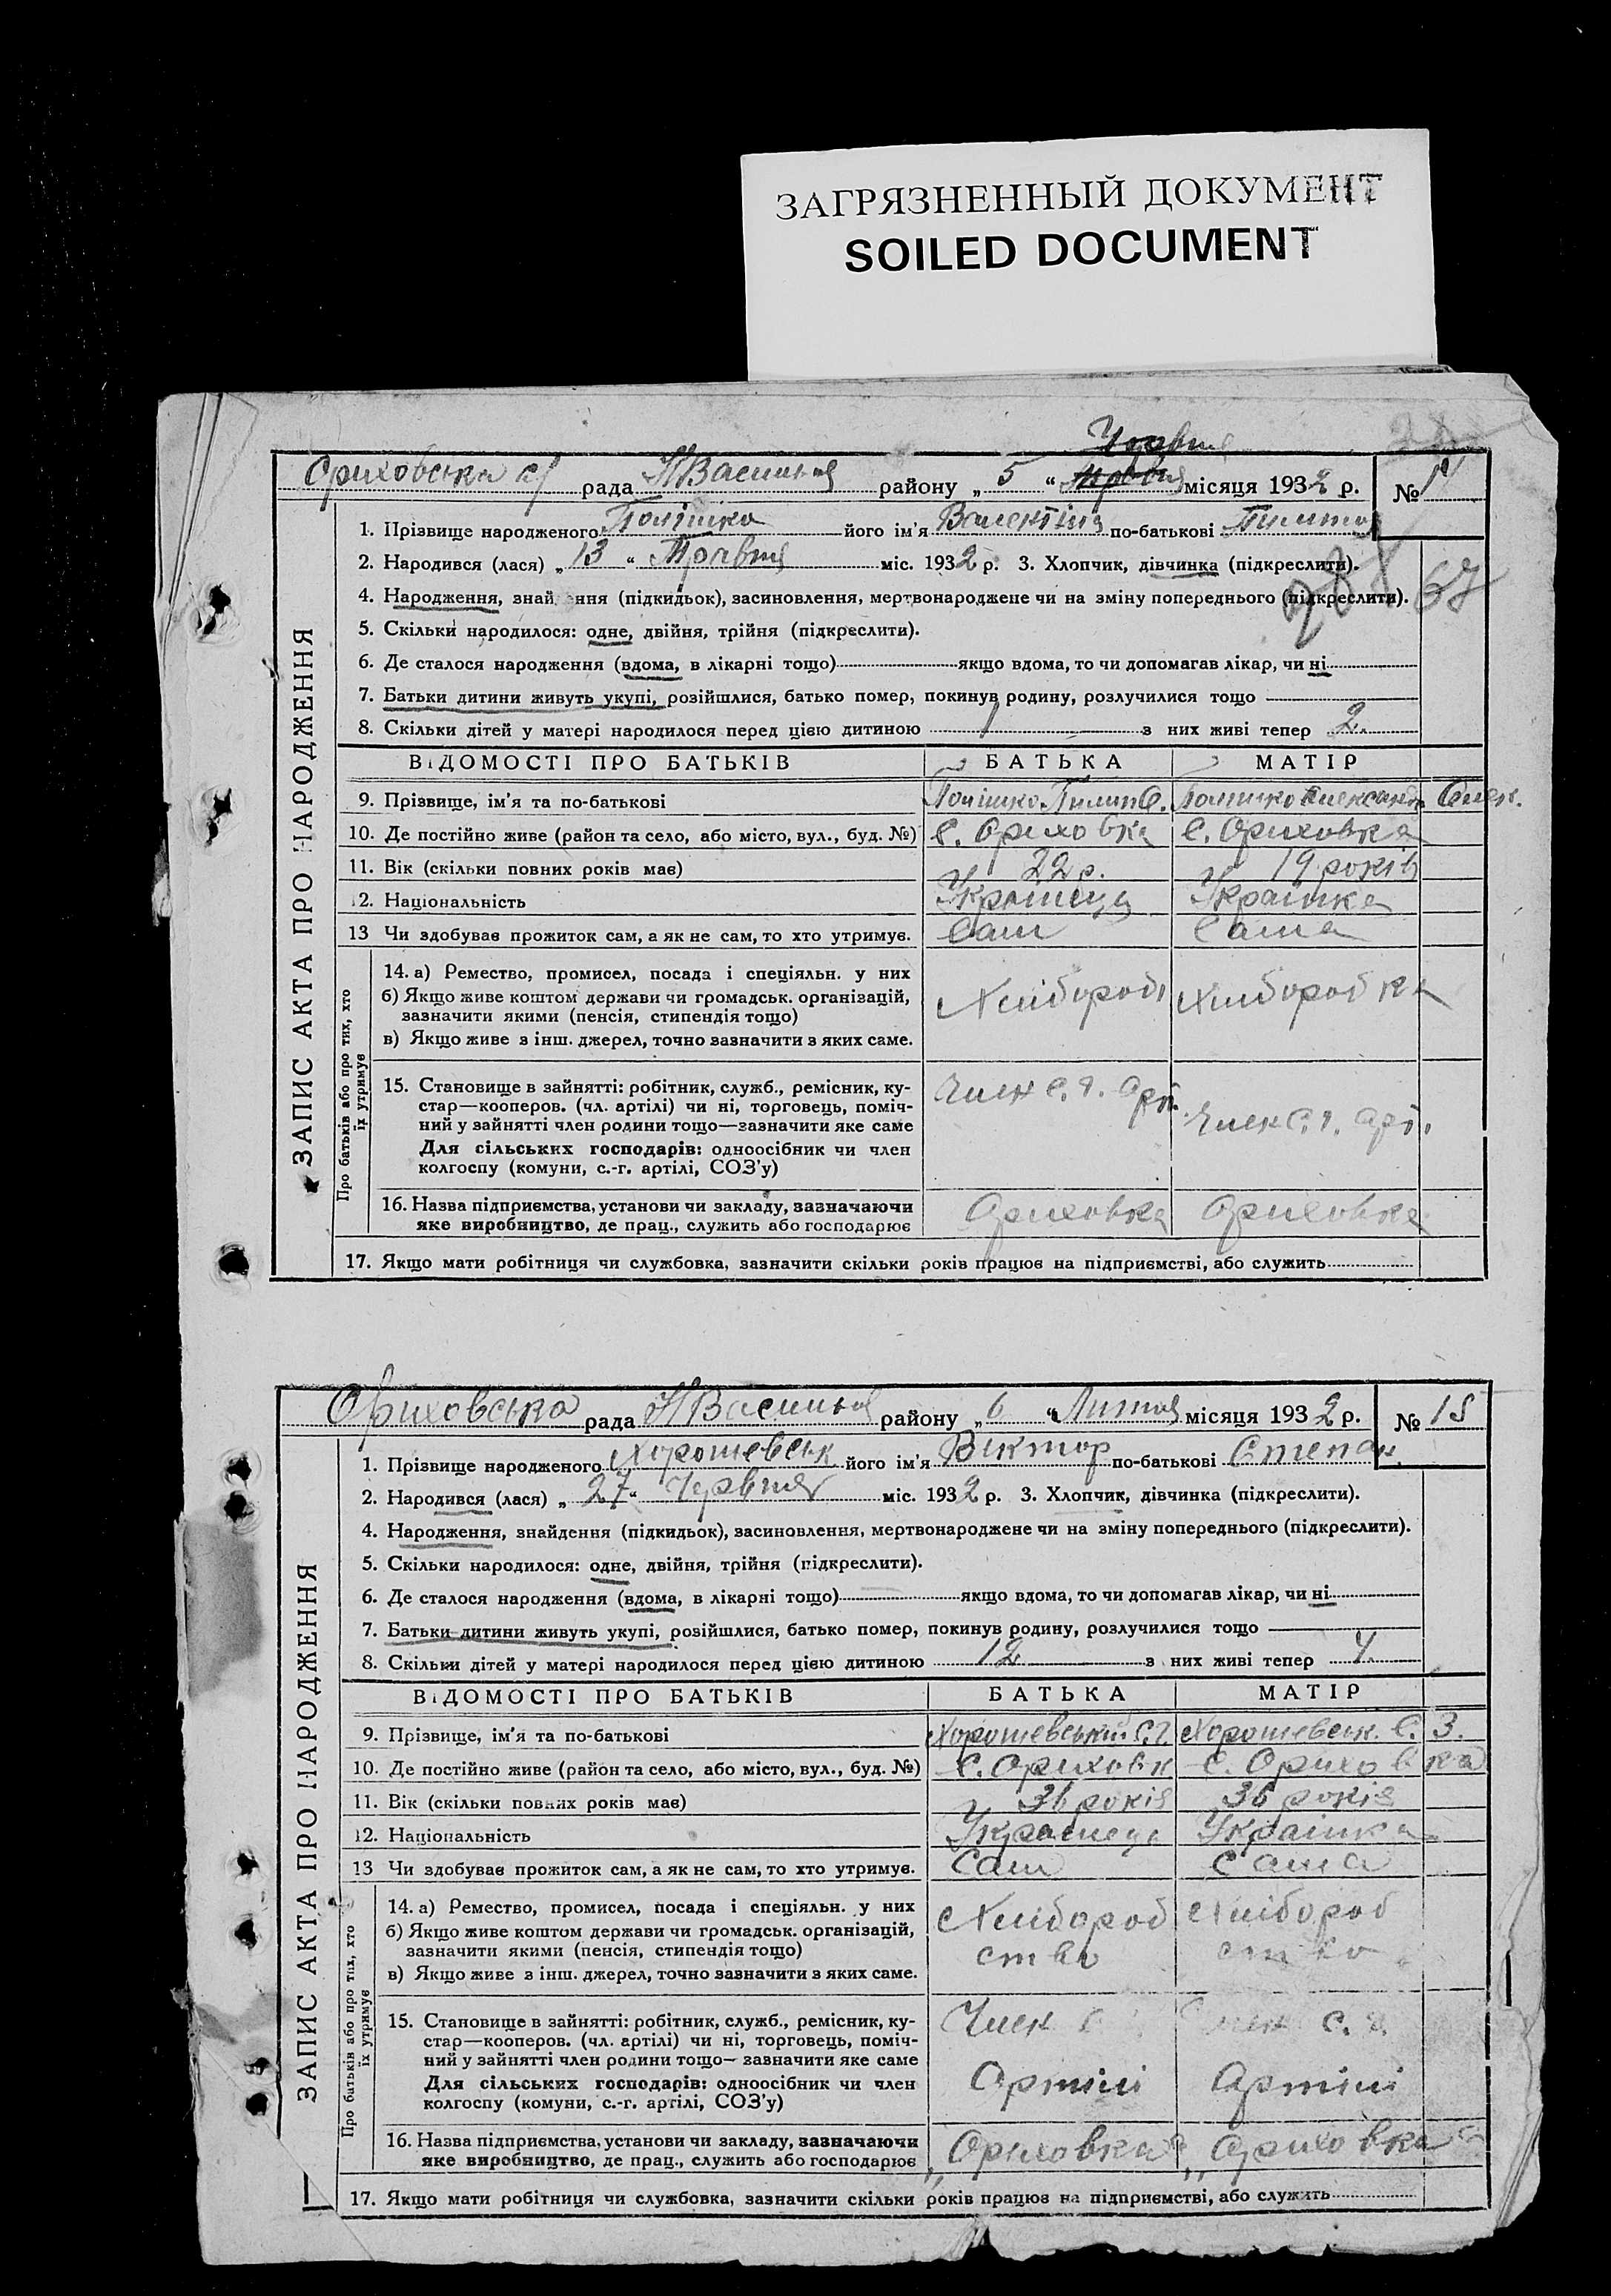 ЗАГРЯЗНЕННЫЙ ДОКУМЕНТ
SOILED DOCUMENT
Ориховська с/ рада НВасильк району „ 5 “ місяця 1932 р. №
1. Прізвище народженого його ім'я Валентіна по-батькові Пилип
2. Народився (лася) „ 13 “ Травня міс. 1932 р. 3. Хлопчик, дівчинка (підкреслити).
4. Народження, знайдення (підкидьок), засиновлення, мертвонароджене чи на зміну попереднього (підкреслити). 67
5. Скільки народилося: одне, двійня, трійня (підкреслити).
6. Де сталося народження (вдома, в лікарні тощо) якщо вдома, то чи допомагав лікар, чи ні
7. Батьки дитини живуть укупі, розійшлися, батько помер, покинув родину, розлучилися тощо
8. Скільки дітей у матері народилося перед цією дитиною 1 з них живі тепер 2.
ВІДОМОСТІ ПРО БАТЬКІВ БАТЬКА МАТІР
9. Прізвище, ім'я та по-батькові Пилип О. Олександ. Олек.
10. Де постійно живе (район та село, або місто, вул., буд. №) с. Ориховка с. Ориховка
11. Вік (скільки повних років має) 22 р. 19 років
12. Національність Українець Українка
13 Чи здобував прожиток сам, а як не сам, то хто утримує. Сам Сама
14. а) Ремество, промисел, посада і спеціяльн. у них Хлібороб Хліборобка
б) Якщо живе коштом держави чи громадськ. організацій,
зазначити якими (пенсія, стипендія тощо)
в) Якщо живе з інш. джерел, точно зазначити з яких саме.
15. Становище в зайнятті: робітник, служб., ремісник, ку- Член с. г. арт. Член с. г. арт.
стар—кооперов. (чл. артілі) чи ні, торговець, поміч-
ний у зайнятті член родини тощо—зазначити яке саме
Для сільських господарів: одноосібник чи член
колгоспу (комуни, с.-г. артілі, СОЗ'у)
16. Назва підприємства, установи чи закладу, зазначаючи Ориховка Ориховка
яке виробництво, де прац., служить або господарює
17. Якщо мати робітниця чи службовка, зазначити скільки років працює на підприємстві, або служить
ЗАПИС АКТА ПРО НАРОДЖЕННЯ
Про батьків або про тих, хто
їх утримує
Ориховська рада НВасильк району „ 6 “ Липня місяця 1932 р. № 15
1. Прізвище народженого Хорошевськ його ім'я Віктор по-батькові Степан.
2. Народився (лася) „ 27 “ Червня міс. 1932 р. 3. Хлопчик, дівчинка (підкреслити).
4. Народження, знайдення (підкидьок), засиновлення, мертвонароджене чи на зміну попереднього (підкреслити).
5. Скільки народилося: одне, двійня, трійня (підкреслити).
6. Де сталося народження (вдома, в лікарні тощо) якщо вдома, то чи допомагав лікар, чи ні
7. Батьки дитини живуть укупі, розійшлися, батько помер, покинув родину, розлучилися тощо
8. Скільки дітей у матері народилося перед цією дитиною 12 з них живі тепер
ВІДОМОСТІ ПРО БАТЬКІВ БАТЬКА МАТІР
9. Прізвище, ім'я та по-батькові Хорошевський С. Хорошевськ. Є. З.
10. Де постійно живе (район та село, або місто, вул., буд. №) с. Ориховк с. Ориховка
11. Вік (скільки повних років має) 36 років 36 років
12. Національність Українець Українка
13 Чи здобував прожиток сам, а як не сам, то хто утримує. Сам Сама
14. а) Ремество, промисел, посада і спеціяльн. у них Хлібороб Хлібороб
б) Якщо живе коштом держави чи громадськ. організацій, ство ство
зазначити якими (пенсія, стипендія тощо)
в) Якщо живе з інш. джерел, точно зазначити з яких саме.
15. Становище в зайнятті: робітник, служб., ремісник, ку- Член с. Член с. г.
стар—кооперов. (чл. артілі) чи ні, торговець, поміч-
ний у зайнятті член родини тощо—зазначити яке саме
Для сільських господарів: одноосібник чи член Артілі Артілі
колгоспу (комуни, с.-г. артілі, СОЗ'у)
16. Назва підприємства, установи чи закладу, зазначаючи „Ориховка“ „Ориховка“
яке виробництво, де прац., служить або господарює
17. Якщо мати робітниця чи службовка, зазначити скільки років працює на підприємстві, або служить
ЗАПИС АКТА ПРО НАРОДЖЕННЯ
Про батьків або про тих, хто
їх утримує